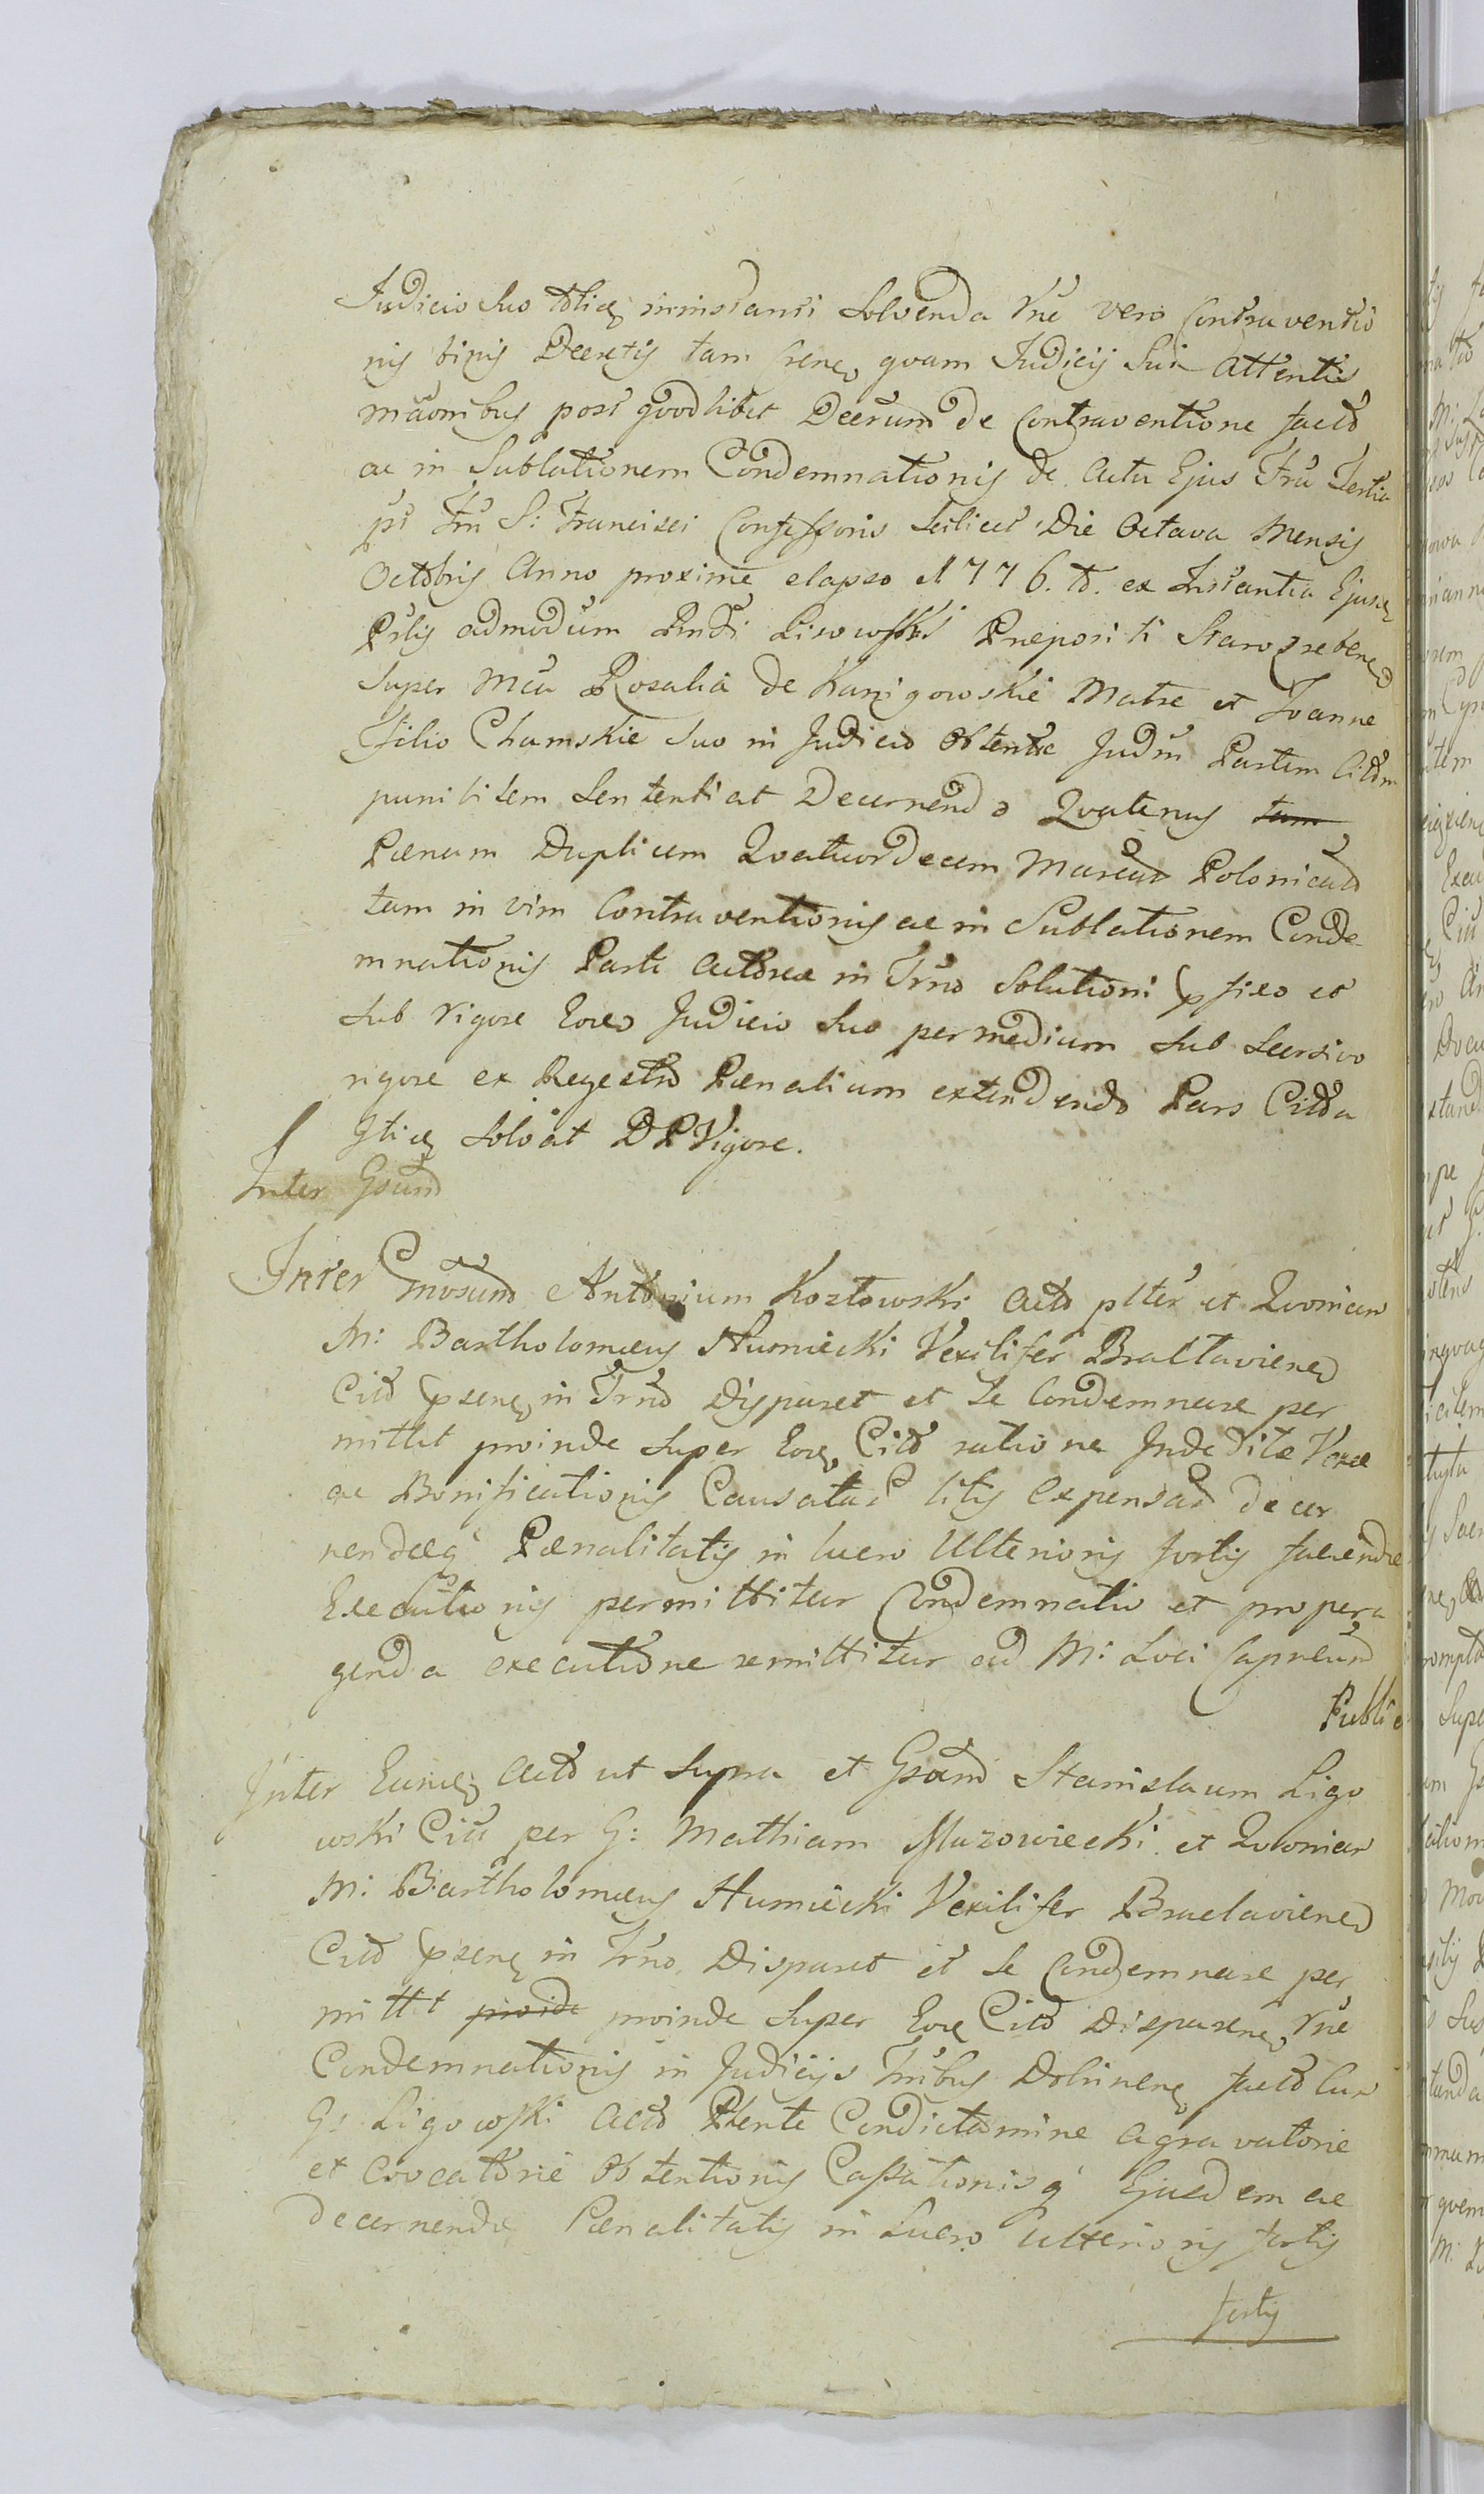 Judicio suo toties ministranti solvenda rne vero Contraventio
nis binis Decretis tam Crene, quam Judicij sui attentis
mãonibus post quodlibet Decrum de Contraventione facto
ac in Sublationem Condemnationis de actu Ejus Tru Tertia
pt Tru S: Francisci Confessoris scilicet Die Octava Mensis
Octobris Anno proxime elapso 1776. to. ex Instantia Ejusd
Prlis admodum Rndi Lisowski Prepositi Starozrebens
super Mca Rosalia de Kanigowskie Matre et Joanne
Filio Chamskie suo in Judicio obtente Judm Partem Cittm
punibilem Sententiat Decernendo Quatenus tam
Pænam Duplicem Quatuordecem Marcas Polonicas
tam in vim Contraventionis ac in Sublationem Conde-
mnationis Parti Actorea in Trno Solutioni pfixo et
sub rigore Eodem Judicio suo per medium sub secrsivo
rigore ex Regestro Pænalium extendendo Pars Citta
solvat D P Vigore.
Inter Gsum
Inter Gnrosum Antonium Kozłowski Acto plter et Quoniam
M: Bartholomæus Humiecki Vexilifer Braclaviens
Citt psens in Trno Disparet et se Condemnare per
mittit proinde super Eodem Citt ratione Indebitæ Vexæ
ac Bonificationis Causatas litis Expensas decer
nendæq Pænalitatis in lucro Ulterioris fortis faciendæ
Executionis permittitur Condemnatio et pro pera
genda executione remittitur ad M: Loci Capneum
Public
Inter Eund Acto ut supra et Gsum Stanislaum Ligo
wski Citt per G: Mathiam Mazowiecki et Quoniam
M: Bartholomæus Humiecki Vexilifer Braclaviens
Citt psens in Trno Disparet et se Condemnare per
mittit proide proinde super Eod Citt Disparene, rne
Condemnationis in Judicijs Tribus Dobrinens facto cum
G: Ligowski Acto Plente Condictamine agravatorie
et evocatorie obtentionis Cassationisq Ejusdem ac
decernendæ Pænalitatis in Lucro ulterioris fortis
fortis